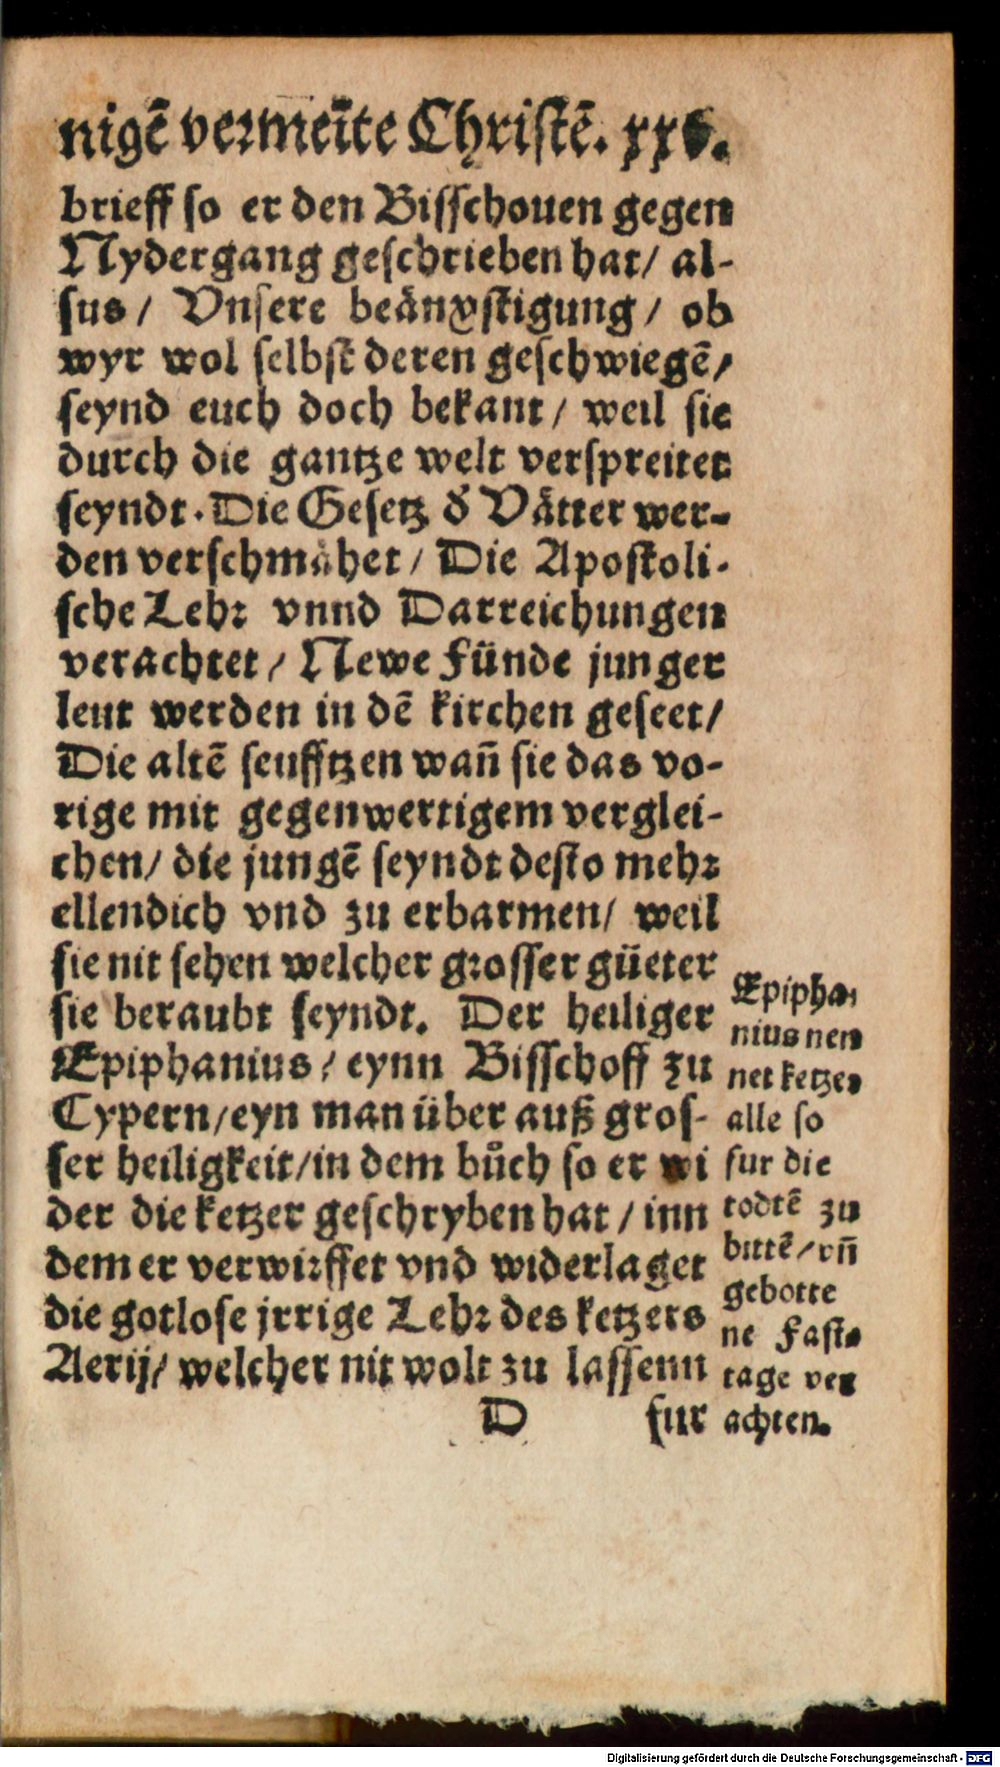 nigē vermeīte Christē. xxv.
brieff so er den Bisschouen gegen
Nydergang geschrieben hat/ al-
sus/ Vnsere beängstigung/ ob
wyr wol selbst deren geschwiegē/
seynd euch doch bekant/ weil sie
durch die gantze welt verspreitet
seyndt. Die Gesetz ď Vätter wer-
den verschmähet/ Die Apostoli-
sche Lehr vnnd Darreichungen
verachtet/ Newe fünde junger
leut werden in dē kirchen geseet/
Die altē seufftzen wañ sie das vo-
rige mit gegenwertigem verglei-
chen/ die jungē seyndt desto mehr
ellendich vnd zu erbarmen/ weil
sie nit sehen welcher grosser güeter
sie beraubt seyndt. Der heiliger
Epiphanius/ eynn Bisschoff zu
Cypern/ eyn man über auß gros-
ser heiligkeit/ in dem bůch so er wi
der die ketzer geschryben hat/ inn
dem er verwirffet vnd widerlaget
die gotlose jrrige Lehr des ketzers
Aerij/ welcher nit wolt zu lassenn
D fur
Epipha-
nius nen
net ketzer
alle so
fur die
todtē zu
bittē/ vñ
gebotte
ne Fast-
tage ver
achten.
Digitalisierung gefördert durch die Deutsche Forschungsgemeinschaft - DFG